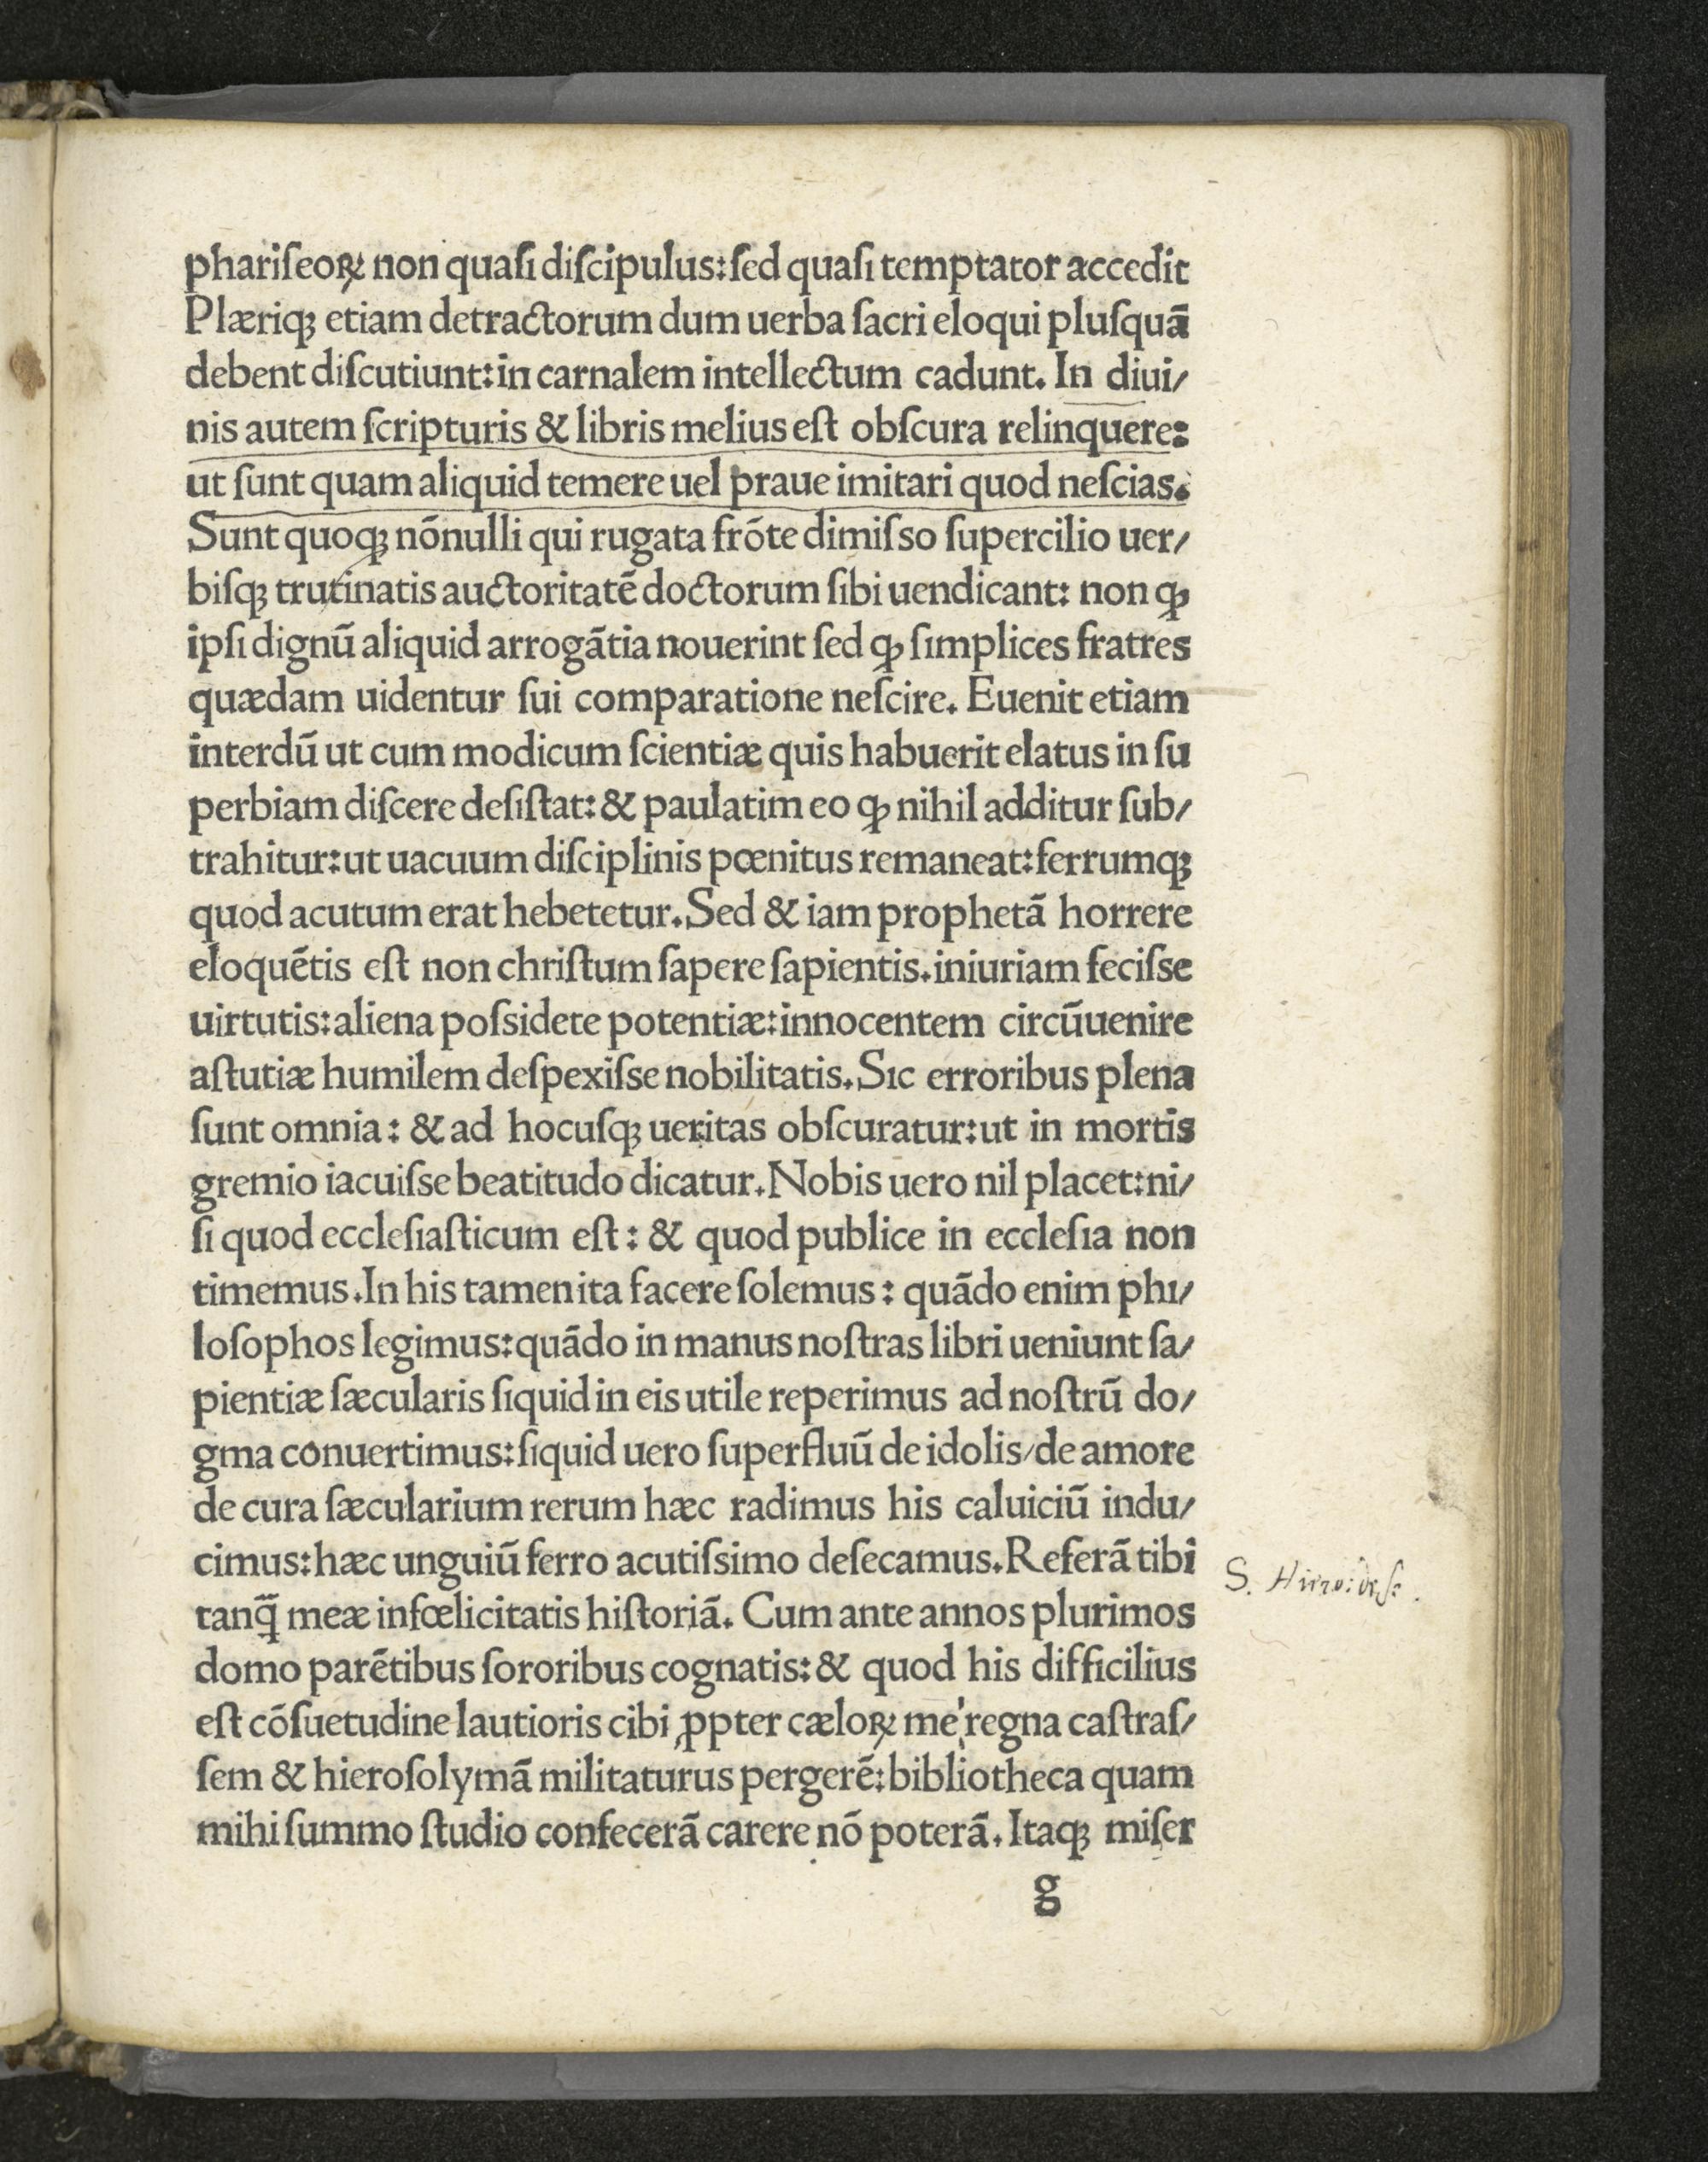 phariſeoꝝ non quaſi diſcipulus: ſed quaſi temptator accedit
Plæriqꝫ etiam detractorum dum uerba ſacri eloqui pluſquã
debent diſcutiunt: in carnalem intellectum cadunt. In diui/
nis autem ſcripturis & libris melius eſt obſcura relinquere:
ut ſunt quam aliquid temere uel praue imitari quod neſcias.
Sunt quoqꝫ nõnulli qui rugata frõte dimiſso ſupercilio uer/
biſqꝫ trutinatis auctoritatẽ doctorum ſibi uendicant: non ꝙ
ipſi dignũ aliquid arrogãtia nouerint ſed ꝙ ſimplices fratres
quædam uidentur ſui comparatione neſcire. Euenit etiam
interdũ ut cum modicum ſcientiæ quis habuerit elatus in ſu
perbiam diſcere deſiſtat: & paulatim eo ꝙ nihil additur ſub/
trahitur: ut uacuum diſciplinis pœnitus remaneat: ferrumqꝫ
quod acutum erat hebetetur. Sed & iam prophetã horrere
eloquẽtis eſt non chriſtum ſapere ſapientis. iniuriam feciſse
uirtutis: aliena poſsidete potentiæ: innocentem circũuenire
aſtutiæ humilem deſpexiſse nobilitatis. Sic erroribus plena
ſunt omnia: & ad hocuſqꝫ ueritas obſcuratur: ut in mortis
gremio iacuiſse beatitudo dicatur. Nobis uero nil placet: ni/
ſi quod eccleſiaſticum eſt: & quod publice in eccleſia non
timemus. In his tamen ita facere ſolemus: quãdo enim phi/
loſophos legimus: quãdo in manus noſtras libri ueniunt ſa/
pientiæ ſæcularis ſiquid in eis utile reperimus ad noſtrũ do/
gma conuertimus: ſiquid uero ſuperfluũ de idolis/de amore
de cura ſæcularium rerum hæc radimus his caluiciũ indu/
cimus: hæc unguiũ ferro acutiſsimo deſecamus. Referã tibi
tanꝗ̃ meæ infœlicitatis hiſtoriã. Cum ante annos plurimos
domo parẽtibus ſororibus cognatis: & quod his difficilius
eſt cõſuetudine lautioris cibi ꝓpter cæloꝝ me'regna caſtraſ/
ſem & hieroſolymã militaturus pergerẽ: bibliotheca quam
mihi ſummo ſtudio confecerã carere nõ poterã. Itaqꝫ miſer
g
S.